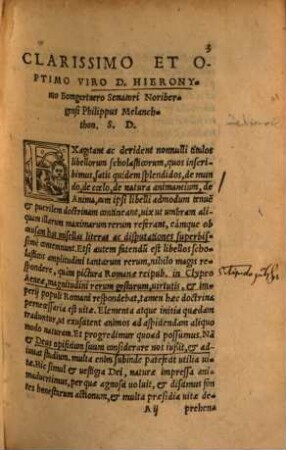 3
CLARISSIMO ET O-
PTIMO VIRO D. HIERONY-
mo Bomgertnero Senatori Noriber-
gensi Philippus Melanch-
thon. S. D.
EXagitant ac derident nonnulli titulos
libellorum scholasticorum, quos inscri-
bimus, satis quidem splendidos, de mun
do, de cœlo, de natura animantium, de
Anima, cum ipsi libelli admodum tenuē
& puerilem doctrinam contineant, uix ut umbram ali-
quam illarum maximarum rerum referant, eamque ob
causam has nostras literas ac disputationes superbis-
sime contemnunt. Etsi autem fatendū est libellos scho-
lasticos amplitudini tantarum rerum, nihilo magis re-
spondere, quàm pictura Romanæ reipub. in Clypeo
Aeneæ, magnitudini rerum gestarum, uirtutis, & im-
perij populi Romani respondebat, tamen hæc doctrina
pernecessaria est uitæ. Elementa atque initia quædam
traduntur, ut exuscitent animos ad aspiciendam aliquo
modo naturam. Et progredimur quoad possumus. Nā
& Deus opificium suum considerare nos iussit, & ad
id studium, multa enim subinde patefecit utilia ui-
tæ. Hic simul & uestigia Dei, naturæ impressa ani-
maduertimus, per quæ agnosci uoluit, & discimus fon
tes honestarum actionum, & multa præsidia uitæ de-
A ij
prehen-